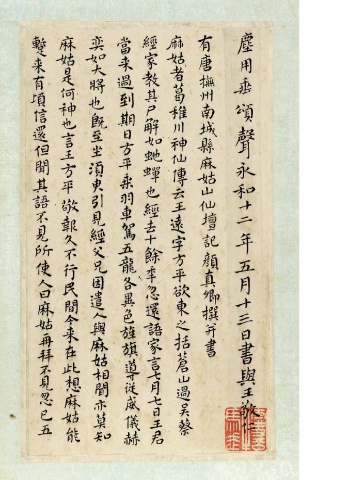 塵用垂頌聲永和十二年五月十三日書與王敬仁
有唐撫州南城縣麻姑山仙壇記顏真卿撰并書
麻姑者葛稚川神仙傳云王遠字方平欲東之括蒼山過吳蔡
經家教其尸解如虵蟬也經去十餘年忽還語家言七月七日王君
當來過到期日方平乘羽車駕五龍各異色旌旗導從威儀赫
奕如大將也既至坐須臾引見經父兄因遣人與麻姑相聞亦莫知
麻姑是何神也言王方平敬報久不行民間今來在此想麻姑能
蹔來有頃信還但聞其語不見所使人曰麻姑再拜不見忽已五